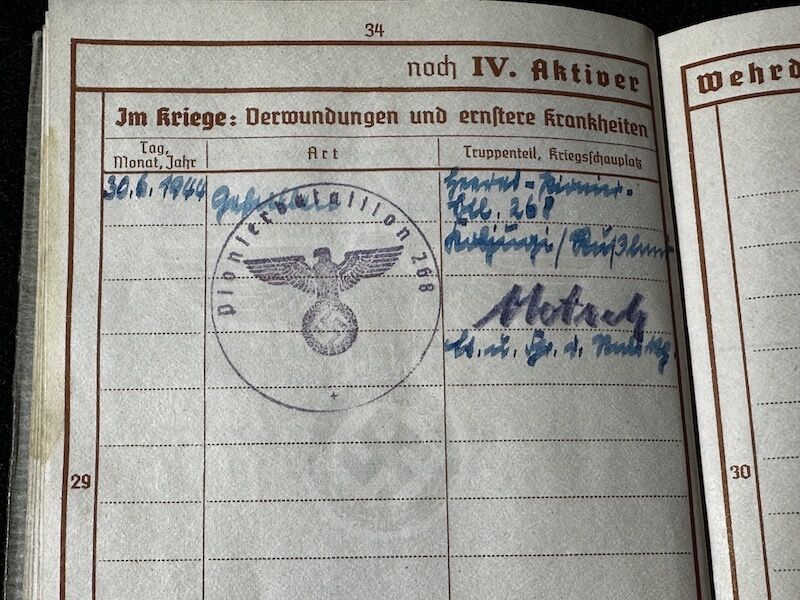 34
noch IV. Aktiver
Wehrd
Im Kriege: Verwundungen und ernstere Krankheiten
Tag, Monat, Jahr
Art
Truppenteil, Kriegsschauplatz
30.6.1944
Heeres-Pionier-
Btl. 268
/Rußland
Pionierbataillon 268
29
30